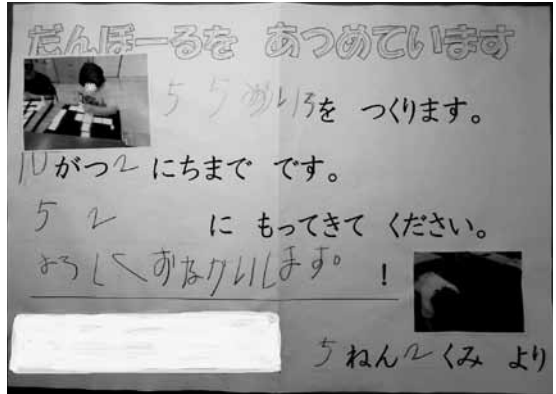 だんぼーるを あつめています
55めいろを つくります。
10がつ2にちまで です。
52 に もってきて ください。
よろしくおねがいします。!
5ねん2くみ より